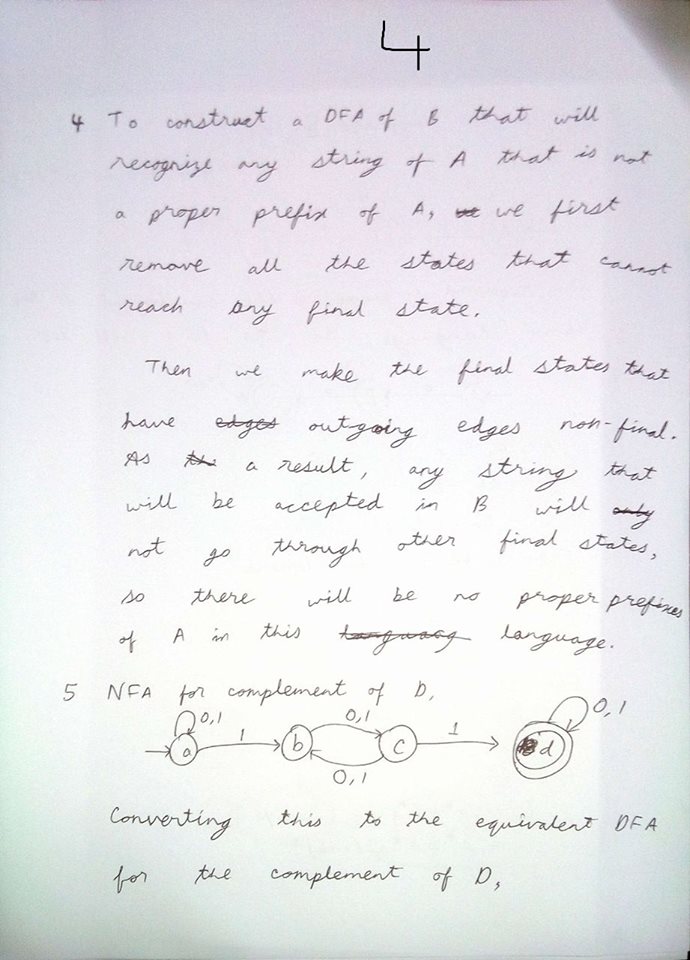 4
4 To construct a DFA of B that will
recognize any string of A that is not
a proper prefix of A, we we first
remove all the states that cannot
reach any final state.
Then we make the final states that
have edges outgoing edges non-final.
As the a result, any string that
will be accepted in B will only
not go through other final states,
so there will be no proper prefixes
of A in this language.
5 NFA for complement of D,
0,1 1 0,1 1 0,1
a b c d
0,1
Converting this to the equivalent DFA
for the complement of D,